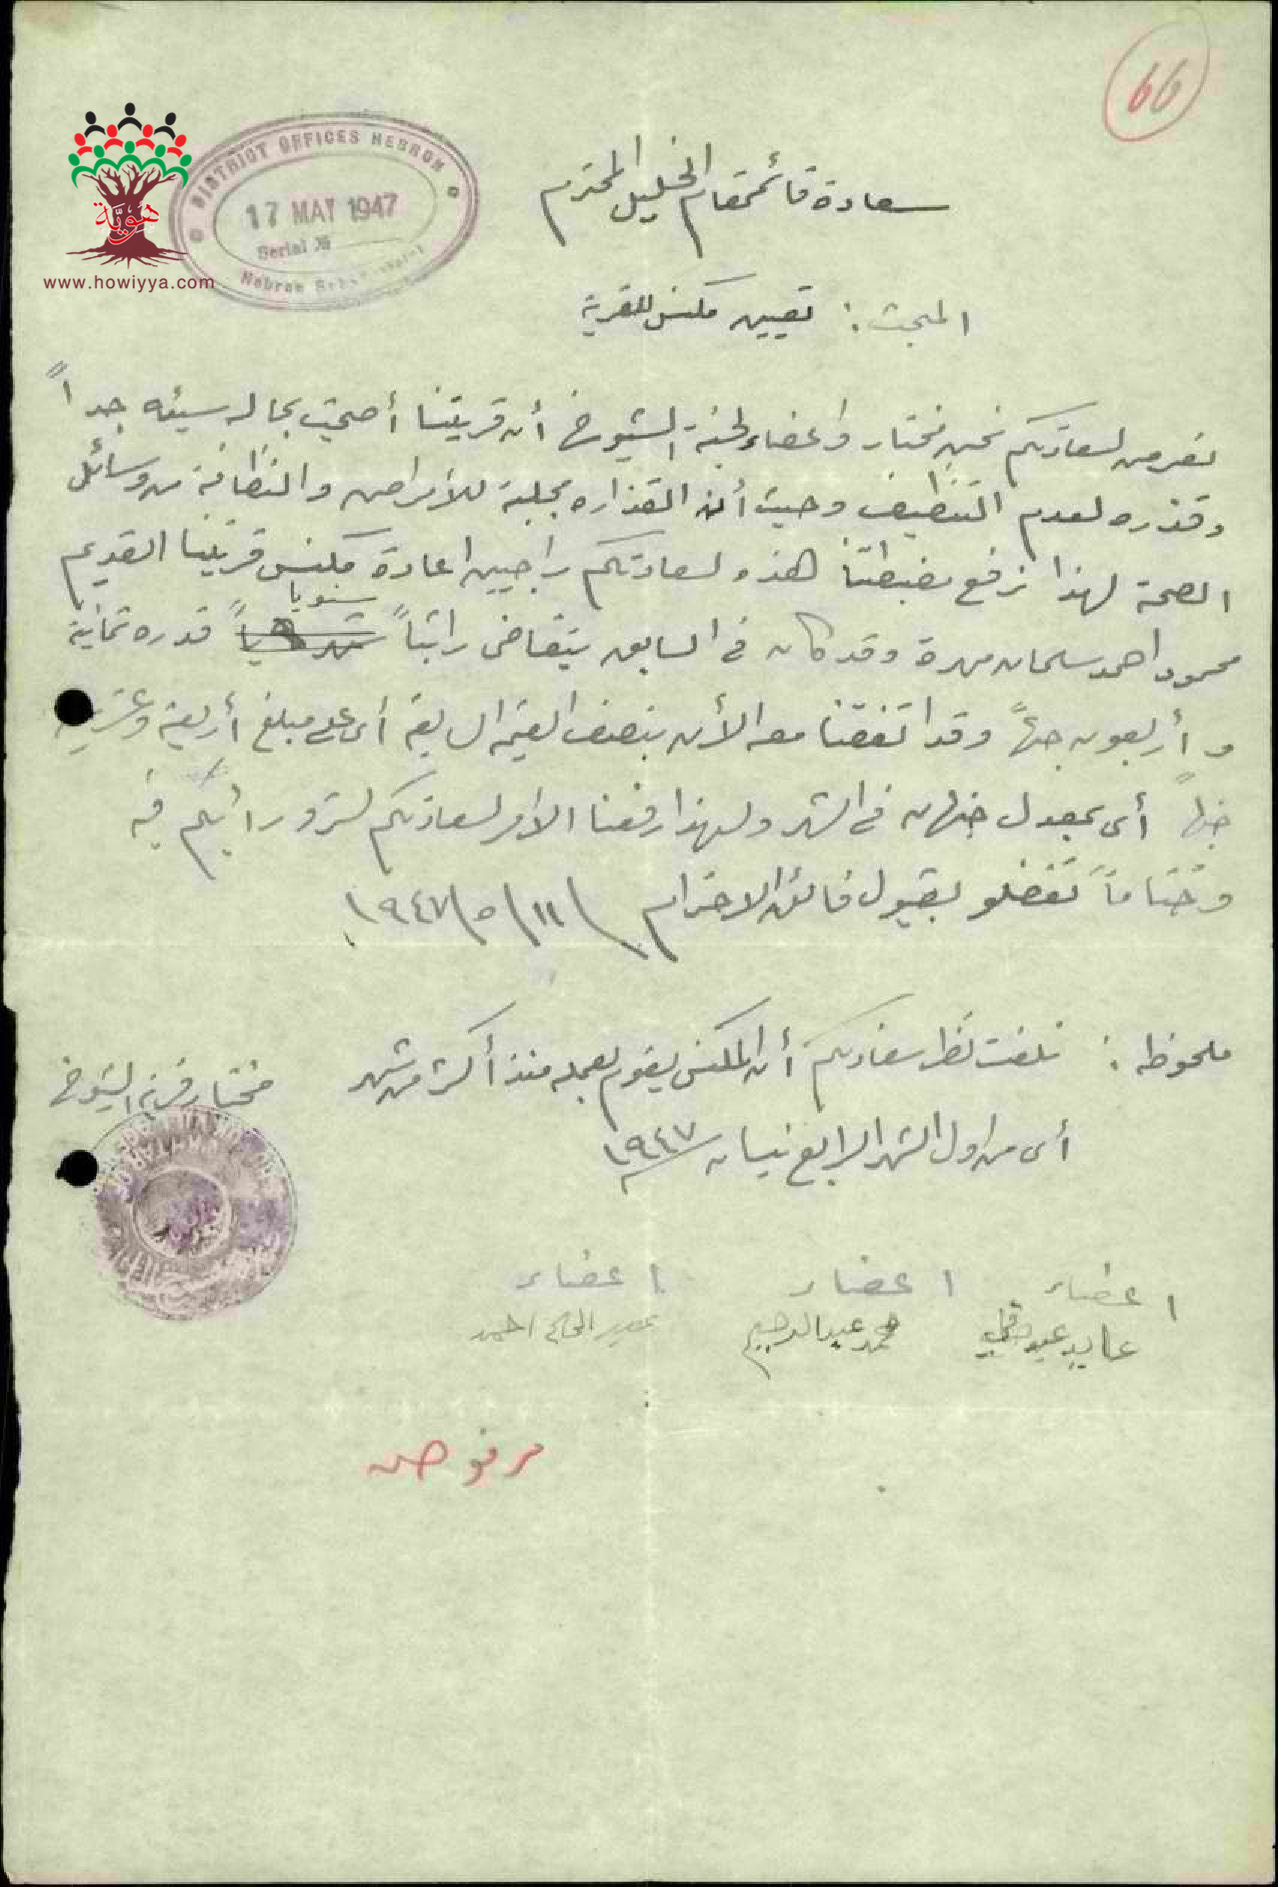 66
هويّة
www.howiyya.com
DISTRICT OFFICES HEBRON
17 MAY 1947
Serial №
Hebron
سعادة قائمقام الخليل المحترم
المبحث: تعيين مكنس للقرية
نعرض لسعادتكم نحن مختار واعضاء لجنة الشيوخ أن قريتنا أصبحت بحاله سيئه جداً
وقذره لعدم التنظيف وحيث أن القذاره مجلبة للأمراض والنظافة من وسائل
الصحة لهذا نرفع مضبطتنا هذه لسعادتكم راجيين اعادة مكنس قريتنا القديم
سنوياً
محمود احمد سلمان مهرة وقد كان في السابق يتقاضى راتباً شهرياً قدره ثمانية
وأربعون جنيهاً وقد اتفقنا معه الأن بنصف القيمه السابقه أى على مبلغ أربعة وعشرين
جنيهاً أى بمعدل جنيهان في الشهر ولهذا رفعنا الامر لسعادتكم لتروا رائيكم فيه
وختاماً تفضلو بقبول فائق الاحترام ١١/٥/١٩٤٧
ملحوظه: نلفت نظر سعادتكم أن المكنس يقوم بعمله منذ أكثر من شهر
أى من اول الشهر الرابع نيسان ١٩٤٧
مختار قرية الشيوخ
اعضاء اعضاء اعضاء
عايد محمد عبد الرحيم الحاج احمد
مرفوض